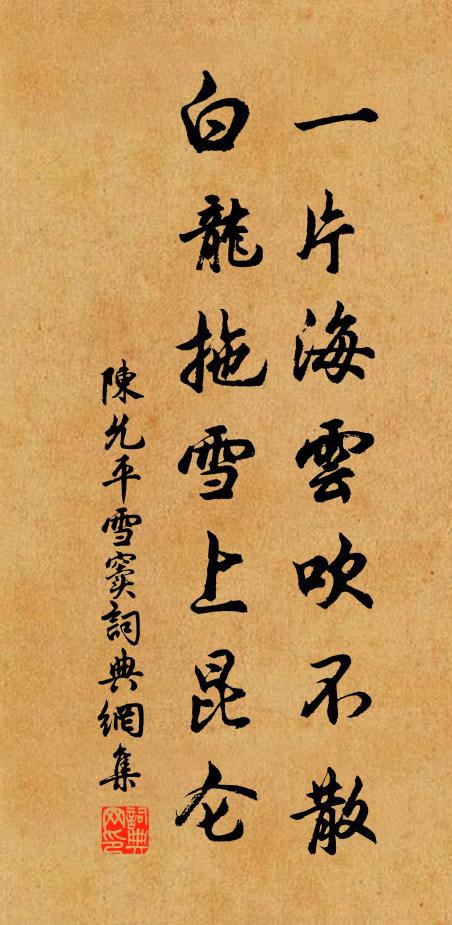 一片海雲吹不散
白龍拖雪上昆仑
陳允平雪竇詞典網集
詞典网印